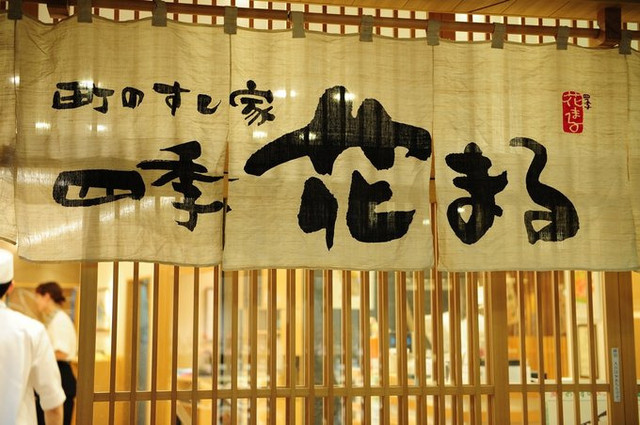 町のすし家
四季花まる
四季
花まる